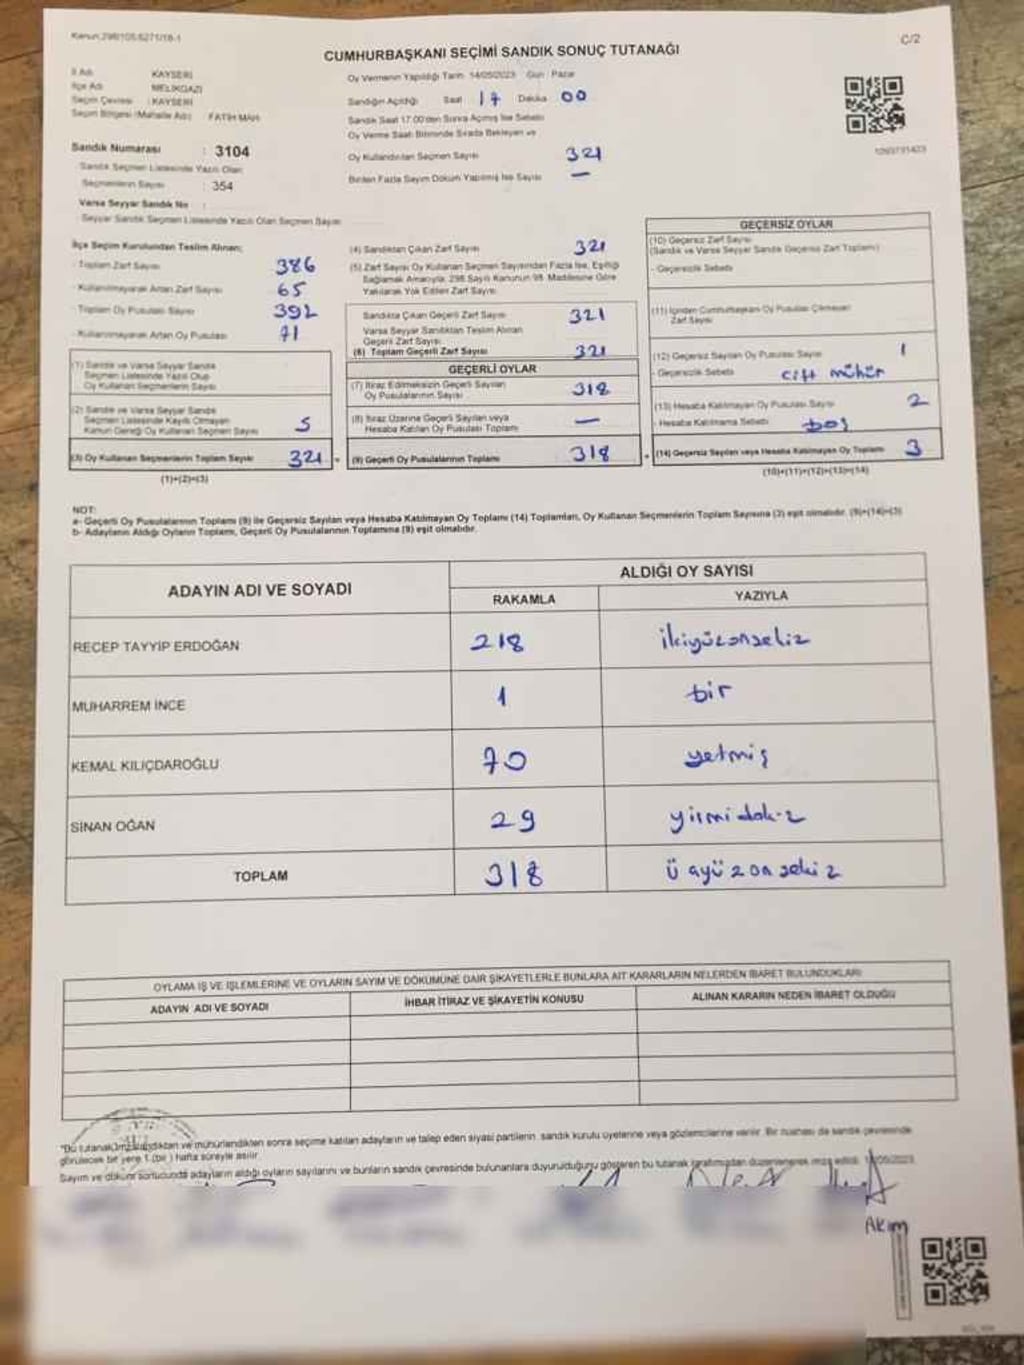 Kanun:298/105:6271/18-1
C/2
CUMHURBAŞKANI SEÇİMİ SANDIK SONUÇ TUTANAĞI
İl Adı KAYSERİ
İlçe Adı MELİKGAZİ
Seçim Çevresi : KAYSERİ
Seçim Bölgesi (Mahalle Adı) FATİH MAH
Sandık Numarası : 3104
Sandık Seçmen Listesinde Yazılı Olan
Seçmenlerin Sayısı : 354
Varsa Seyyar Sandık No :
Seyyar Sandık Seçmen Listesinde Yazılı Olan Seçmen Sayısı
Oy Vermenin Yapıldığı Tarih 14/05/2023 Gün : Pazar
Sandığın Açıldığı Saat 17 Dakika 00
Sandık Saat 17.00'den Sonra Açılmış İse Sebebi
Oy Verme Saati Bitiminde Sırada Bekleyen ve
Oy Kullandırılan Seçmen Sayısı 321
Birden Fazla Sayım Döküm Yapılmış İse Sayısı —
İlçe Seçim Kurulundan Teslim Alınan:
- Toplam Zarf Sayısı 386
- Kullanılmayarak Artan Zarf Sayısı 65
- Toplam Oy Pusulası Sayısı 392
- Kullanılmayarak Artan Oy Pusulası 71
(1) Sandık ve Varsa Seyyar Sandık
Seçmen Listesinde Yazılı Olup
Oy Kullanan Seçmenlerin Sayısı
(2) Sandık ve Varsa Seyyar Sandık
Seçmen Listesinde Kayıtlı Olmayan
Kanun Gereği Oy Kullanan Seçmen Sayısı 5
(3) Oy Kullanan Seçmenlerin Toplam Sayısı 321
(1)+(2)=(3)
(4) Sandıktan Çıkan Zarf Sayısı 321
(5) Zarf Sayısı Oy Kullanan Seçmen Sayısından Fazla İse, Eşitliği
Sağlamak Amacıyla, 298 Sayılı Kanunun 98. Maddesine Göre
Yakılarak Yok Edilen Zarf Sayısı
Sandıkta Çıkan Geçerli Zarf Sayısı 321
Varsa Seyyar Sandıktan Teslim Alınan
Geçerli Zarf Sayısı
(6) Toplam Geçerli Zarf Sayısı 321
GEÇERLİ OYLAR
(7) İtiraz Edilmeksizin Geçerli Sayılan
Oy Pusulalarının Sayısı 318
(8) İtiraz Üzerine Geçerli Sayılan veya
Hesaba Katılan Oy Pusulası Toplamı —
(9) Geçerli Oy Pusulalarının Toplamı 318
GEÇERSİZ OYLAR
(10) Geçersiz Zarf Sayısı
(Sandık ve Varsa Seyyar Sandık Geçersiz Zarf Toplamı)
- Geçersizlik Sebebi
(11) İçinden Cumhurbaşkanı Oy Pusulası Çıkmayan
Zarf Sayısı
(12) Geçersiz Sayılan Oy Pusulası Sayısı 1
- Geçersizlik Sebebi çift mühür
(13) Hesaba Katılmayan Oy Pusulası Sayısı 2
- Hesaba Katılmama Sebebi boş
(14) Geçersiz Sayılan veya Hesaba Katılmayan Oy Toplamı 3
(10)+(11)+(12)+(13)=(14)
NOT:
a- Geçerli Oy Pusulalarının Toplamı (9) ile Geçersiz Sayılan veya Hesaba Katılmayan Oy Toplamı (14) Toplamları, Oy Kullanan Seçmenlerin Toplam Sayısına (3) eşit olmalıdır. (9)+(14)=(3)
b- Adayların Aldığı Oyların Toplamı, Geçerli Oy Pusulalarının Toplamına (9) eşit olmalıdır.
ADAYIN ADI VE SOYADI ALDIĞI OY SAYISI
RAKAMLA YAZIYLA
RECEP TAYYİP ERDOĞAN 218 ikiyüzonsekiz
MUHARREM İNCE 1 bir
KEMAL KILIÇDAROĞLU 70 yetmiş
SİNAN OĞAN 29 yirmidokuz
TOPLAM 318 üçyüzonsekiz
OYLAMA İŞ VE İŞLEMLERİNE VE OYLARIN SAYIM VE DÖKÜMÜNE DAİR ŞİKAYETLERLE BUNLARA AİT KARARLARIN NELERDEN İBARET BULUNDUKLARI
ADAYIN ADI VE SOYADI İHBAR İTİRAZ VE ŞİKAYETİN KONUSU ALINAN KARARIN NEDEN İBARET OLDUĞU
"Bu tutanak imzalandıktan ve mühürlendikten sonra seçime katılan adayların ve talep eden siyasi partilerin, sandık kurulu üyelerine veya gözlemcilerine verilir. Bir nüshası da sandık çevresinde
görülecek bir yere 1 (bir) hafta süreyle asılır.
Sayım ve döküm sonucunda adayların aldığı oyların sayılarını ve bunların sandık çevresinde bulunanlara duyurulduğunu gösteren bu tutanak tarafımızdan düzenlenerek imza edildi.
Akım